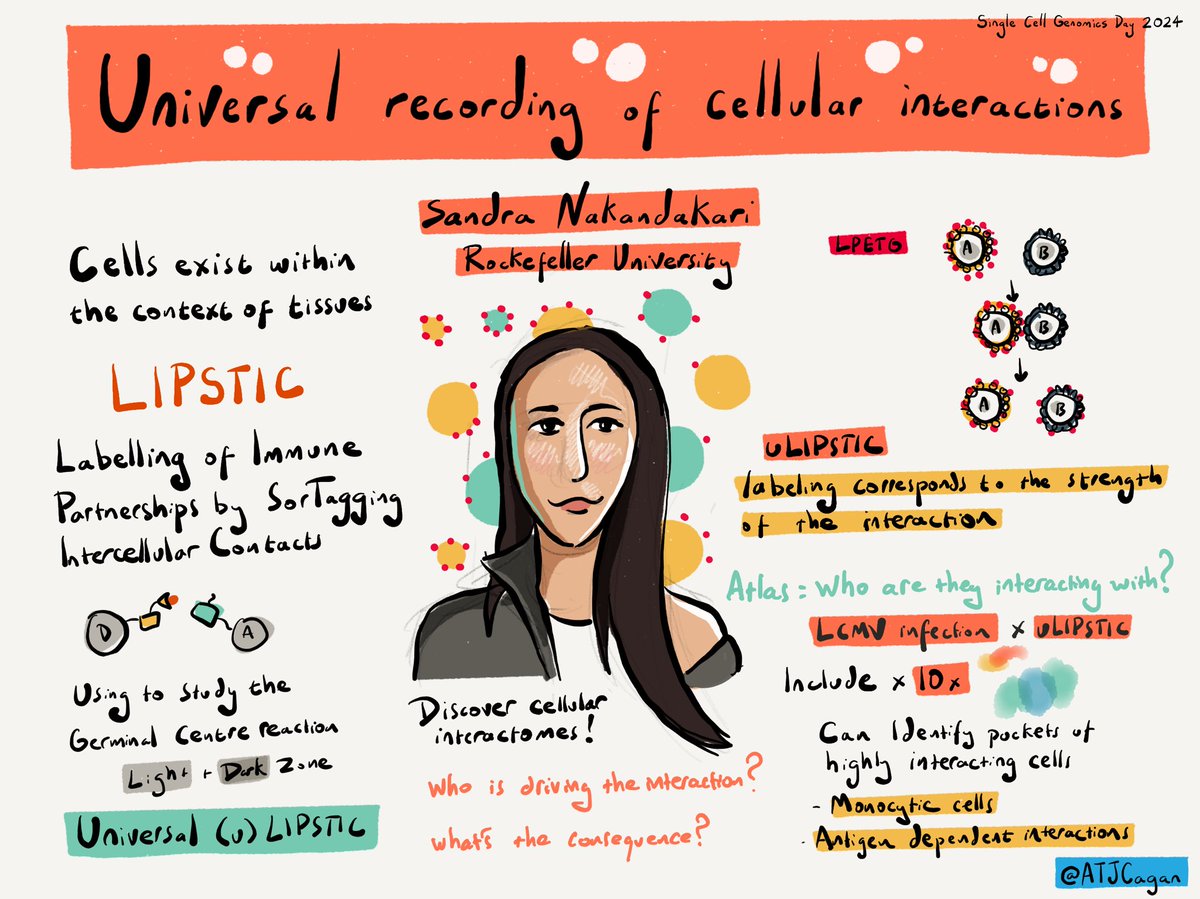 Single Cell Genomics Day 2024
Universal recording of cellular interactions
Sandra Nakandakari
Rockefeller University
Cells exist within
the context of tissues
LIPSTIC
Labelling of Immune
Partnerships by SorTagging
Intercellular Contacts
D
A
Using to study the
Germinal Centre reaction
Light + Dark Zone
Universal (u) LIPSTIC
Discover cellular
interactomes!
Who is driving the interaction?
What's the consequence?
LPETG
A
B
A
B
A
B
uLIPSTIC
labeling corresponds to the strength
of the interaction
Atlas = Who are they interacting with?
LCMV infection x uLIPSTIC
Include x 10x
Can Identify pockets of
highly interacting cells
- Monocytic cells
- Antigen dependent interactions
@ATJCagan